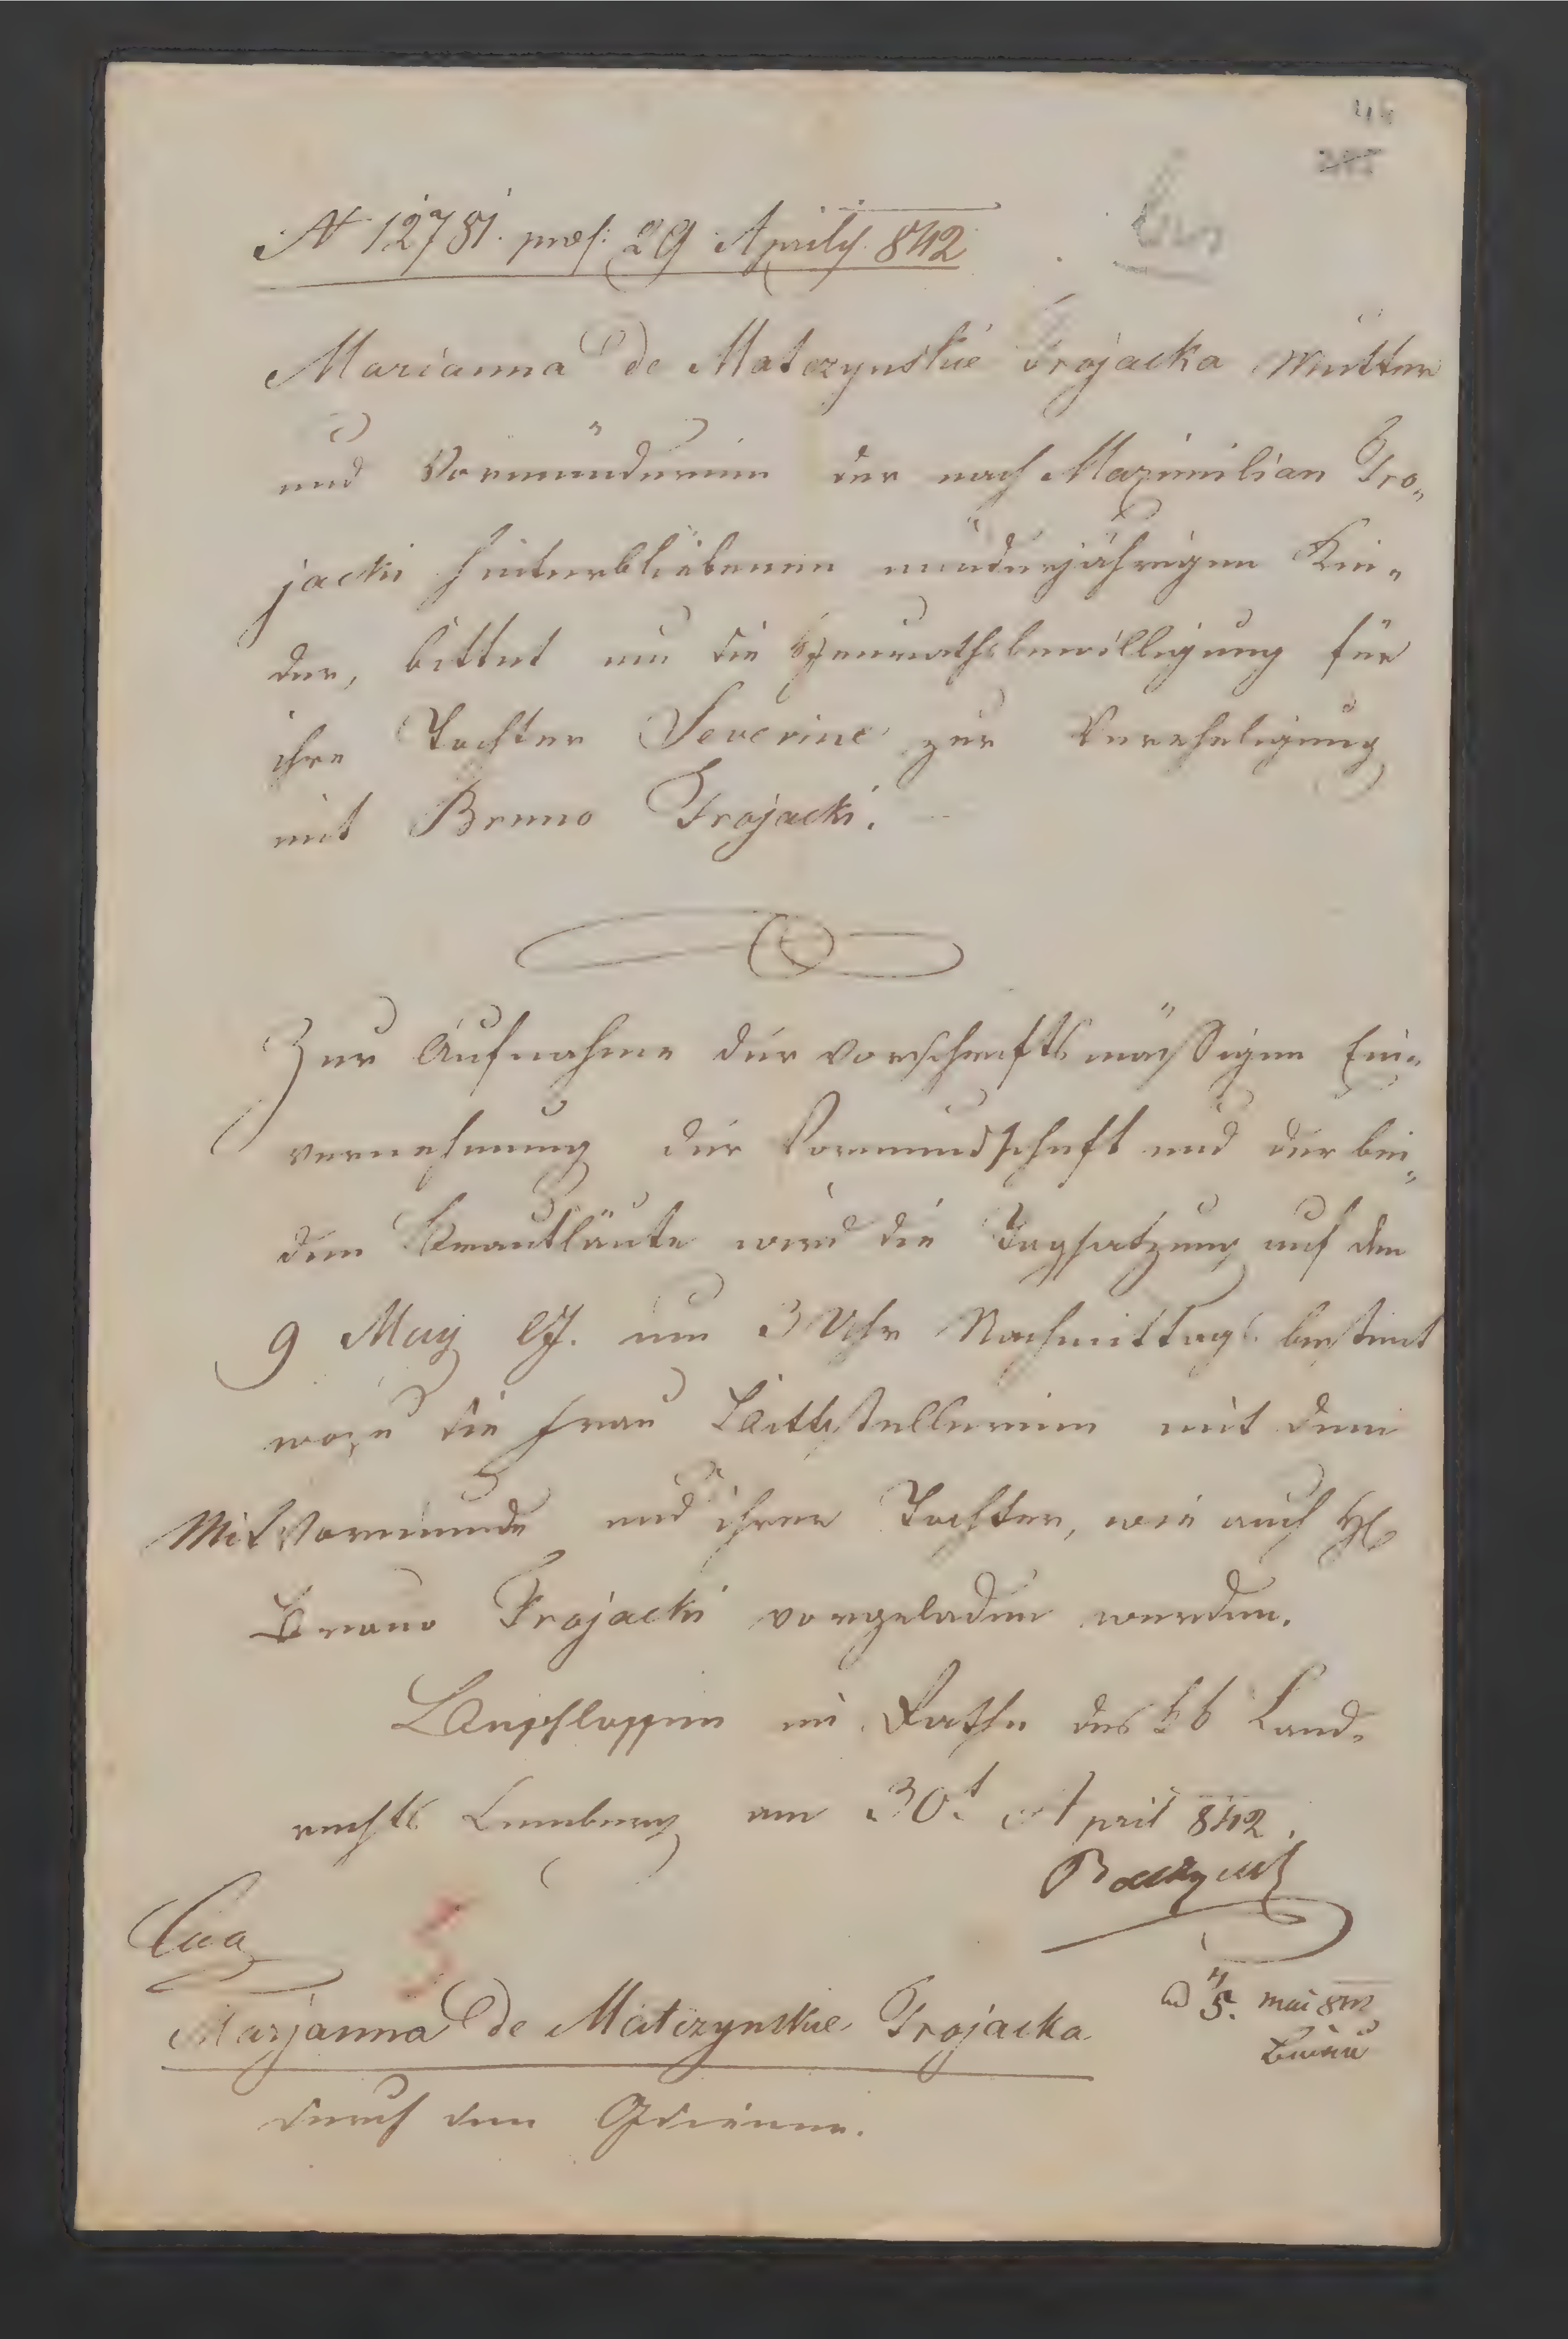 N 12781. præs: 29 Aprily 842
Marianna de Matczynskie Trojacka Mutter
und Vormünderinn der nach Maximilian Tro„
jacki hinterbliebenen minderjährigen Kin„
der, bittet um die Heurathsbewilligung für
ihre Tochter Severine zur Vereheligung
mit Bruno Trojacki.
Zur Aufnahme der vorschriftsmäßigen Ein„
vernehmung der Vormundschaft und der bei„
den Brautläute wird die Tagsatzung auf den
9 May lJ. um 3 Uhr Nachmittags bestimt
wozu die Frau Bittstellerinn mit dem
Mitvormunde und ihrer Tochter, wie auch H
Bruno Trojacki vorgeladen werden.
Beschlossen im Rathe des kk Land„
rechts Lemberg am 30t April 842.
Marjanna de Matczynskie Trojacka
durch den
5. Mai 842